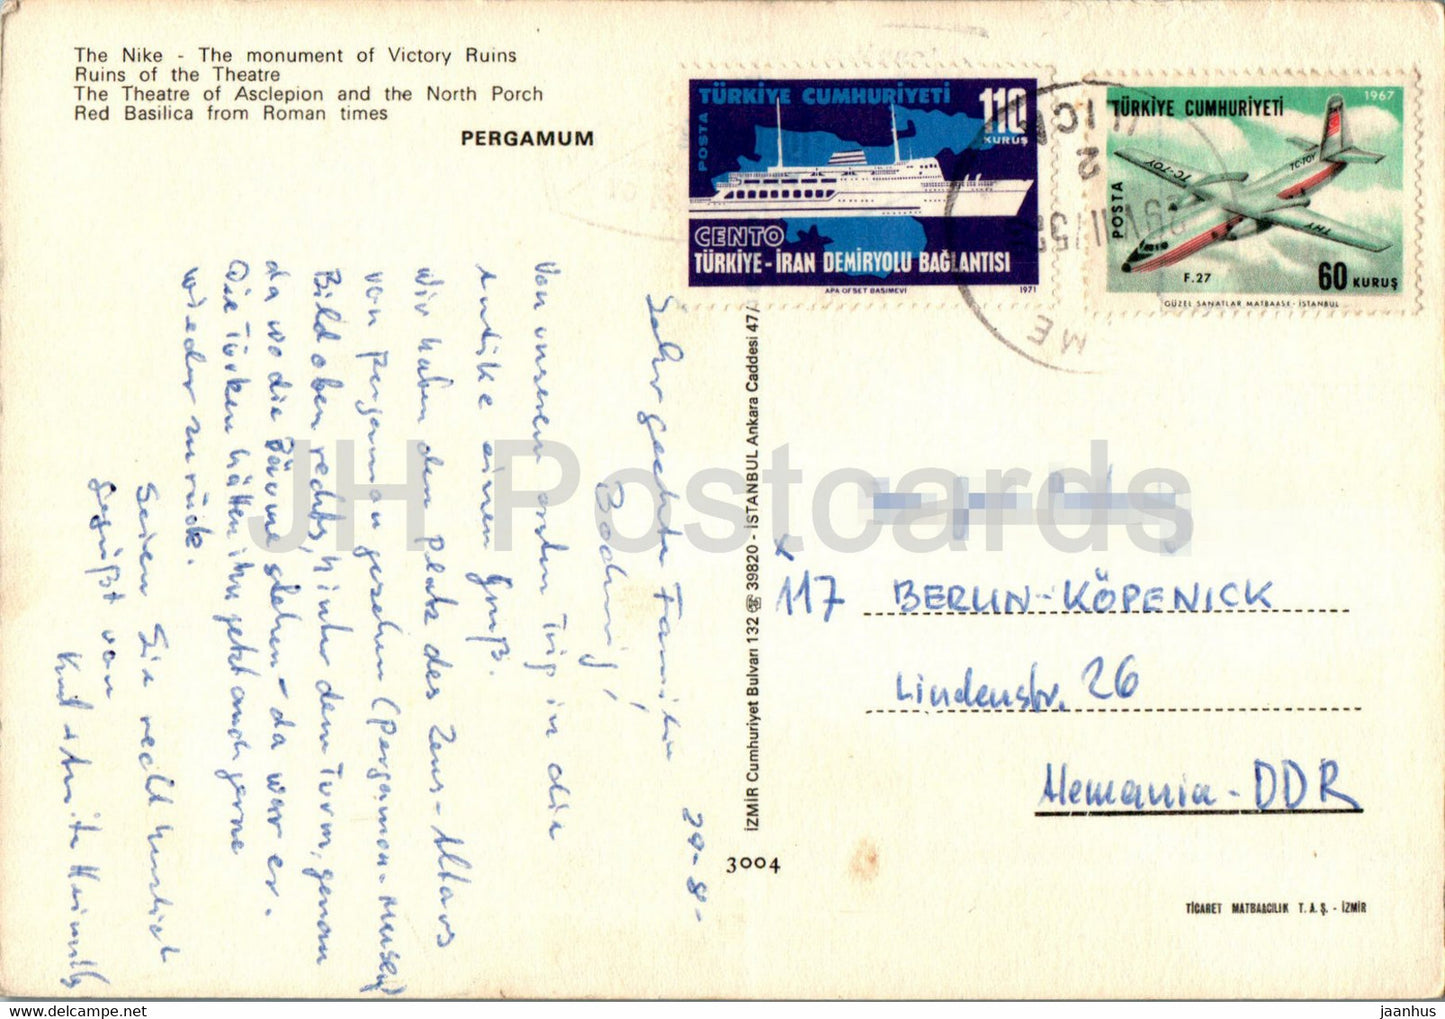 The Nike - The monument of Victory Ruins
Ruins of the Theatre
The Theatre of Asclepion and the North Porch
Red Basilica from Roman times
PERGAMUM
TÜRKİYE CUMHURİYETİ
110
KURUŞ
POSTA
CENTO
TÜRKİYE - İRAN DEMİRYOLU BAĞLANTISI
APA OFSET BASIMEVİ
1971
1967
TÜRKİYE CUMHURİYETİ
TC-TOY
TC-TOY
THY
POSTA
F.27
60 KURUŞ
GÜZEL SANATLAR MATBAASI - İSTANBUL
29-8-
Sehr geehrte Familie
Von unserem ersten Trip in die
Antike einen Gruß.
Wir haben den Platz des Zeus-Altars
von Pergamon gesehen (Pergamon-Museum)
Bild oben rechts, hinter dem Turm, genau
da wo die Bäume stehen - da war er.
Die Türken hätten ihn jetzt auch gerne
wieder zurück.
Seien Sie recht herzlich
gegrüßt von
İZMİR Cumhuriyet Bulvarı 132 ☏ 39820 - İSTANBUL Ankara Caddesi 47/
3004
117 BERLIN-KÖPENICK
Lindenstr. 26
Alemania-DDR
TİCARET MATBAACILIK T. A. Ş. - İZMİR
JH Postcards
jaanhus
https://www.delcampe.net